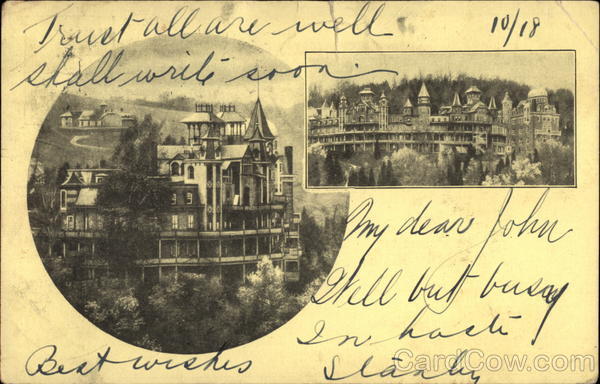 10/18
My dear John
Well but busy
In haste
Stanley
Trust all are well
shall write soon.
Best wishes
CardCow.com